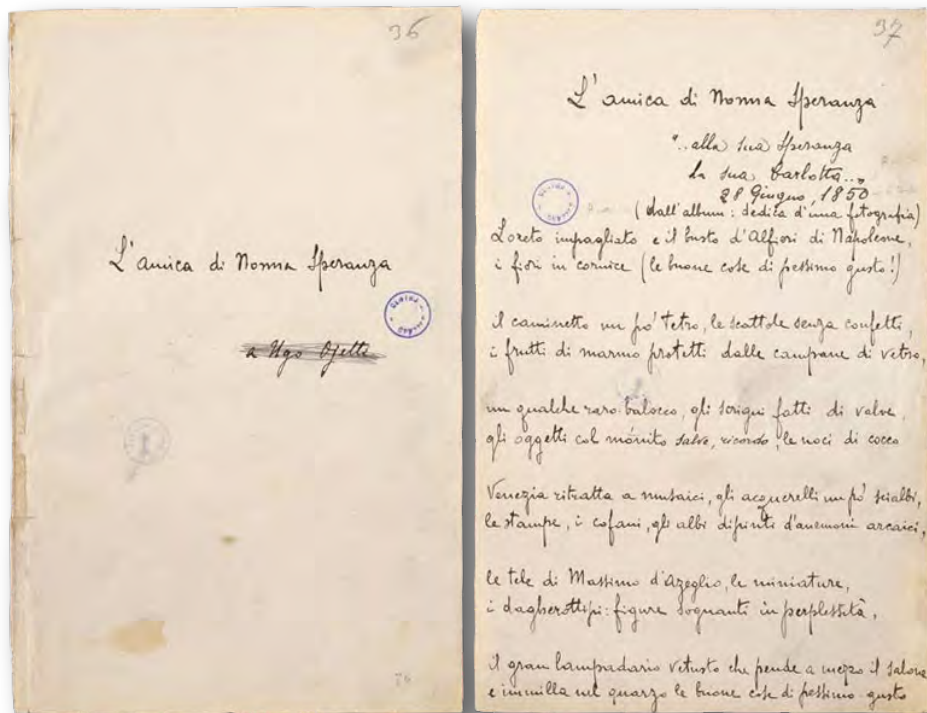 36
L'amica di Nonna Speranza
a Ugo Ojetti
76
37
L'amica di Nonna Speranza
"..alla sua Speranza
la sua Carlotta...„
28 Giugno, 1850
(dall'album: dedica d'una fotografia)
Loreto impagliato e il busto d'Alfieri di Napoleone,
i fiori in cornice (le buone cose di pessimo gusto!)
il caminetto un pò tetro, le scattole senza confetti,
i frutti di marmo protetti dalle campane di vetro,
un qualche raro balocco, gli scrigni fatti di valve,
gli oggetti col mònito salve, ricordo, le noci di cocco
Venezia ritratta a musaici, gli acquerelli un pò scialbi,
le stampe, i cofani, gli albi dipinti d'anemoni arcaici,
le tele di Massimo d'Azeglio, le miniature,
i dagherottipi: figure sognanti in perplessità,
il gran lampadario vetusto che pende a mezzo il salone
e immilla nel quarzo le buone cose di pessimo gusto